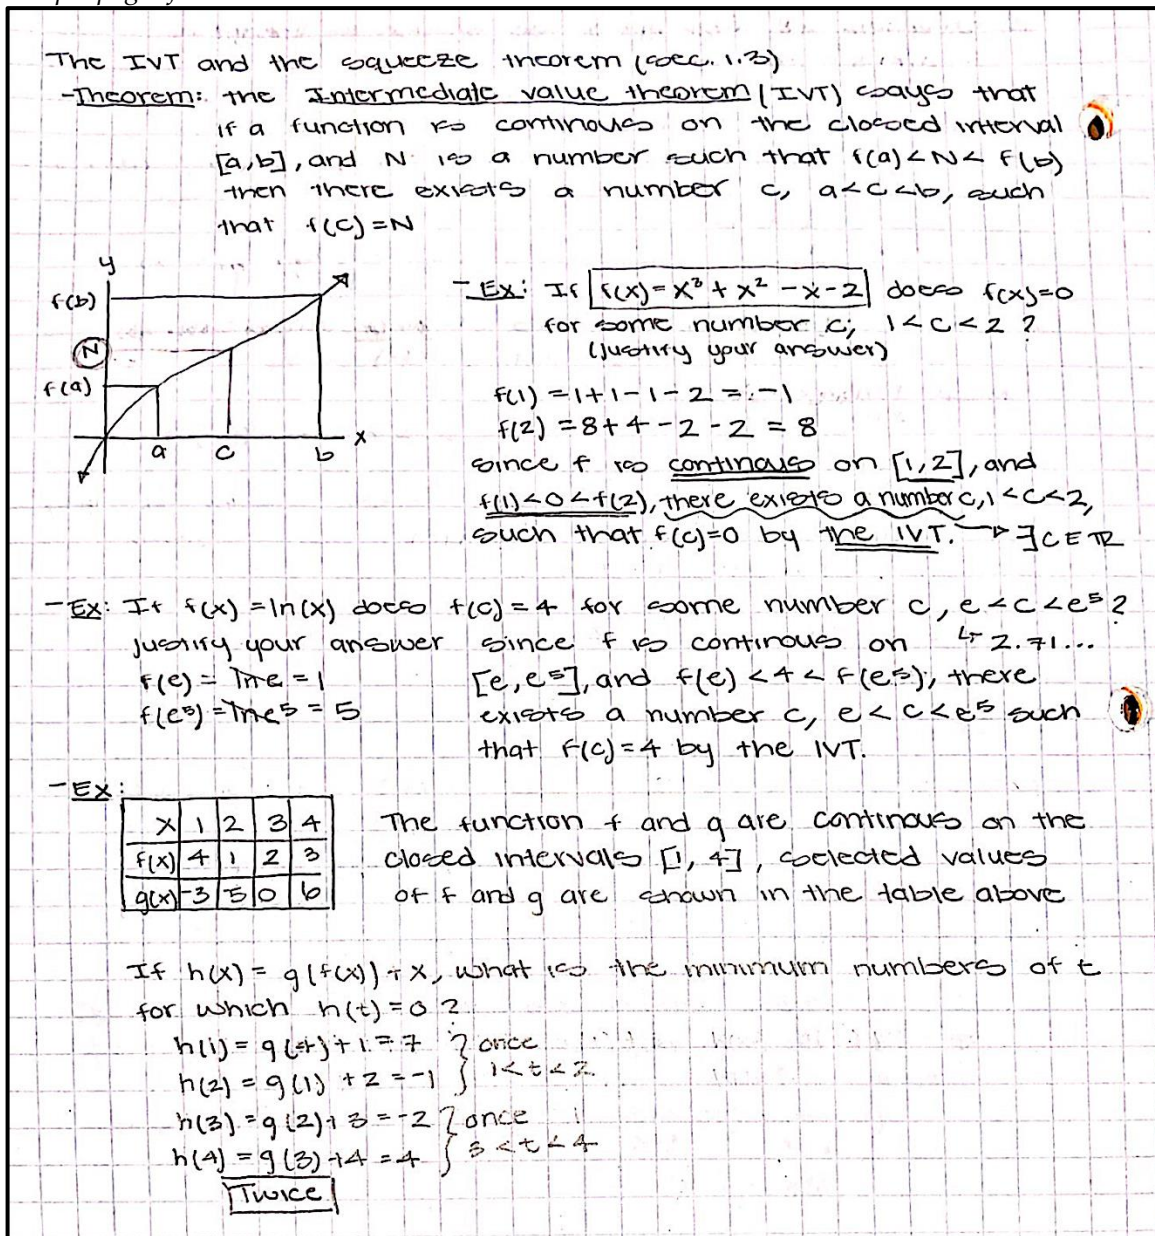 The IVT and the squeeze theorem (sec. 1.3)
-Theorem: the Intermediate value theorem (IVT) says that
if a function is continous on the closed interval
[a,b], and N is a number such that f(a) < N < f(b)
then there exists a number c, a<c<b, such
that f(c)=N
y
f(b)
N
f(a)
a
c
b
x
- Ex: If f(x) = x³ + x² - x - 2 does f(x)=0
for some number c, 1 < c < 2 ?
(Justify your answer)
f(1) = 1+1-1-2 = -1
f(2) = 8+4-2-2 = 8
since f is continous on [1,2], and
f(1)<0<f(2), there exists a number c, 1<c<2,
such that f(c)=0 by the IVT. → ∃ C ∈ ℝ
- Ex: If f(x) = ln(x) does f(c) = 4 for some number c, e < c < e⁵ ?
Justify your answer since f is continous on ↳ 2.71...
f(e) = lne = 1 [e, e⁵], and f(e) < 4 < f(e⁵), there
f(e⁵) = lne⁵ = 5 exists a number c, e < c < e⁵ such
that f(c) = 4 by the IVT.
- Ex:
x 1 2 3 4
f(x) 4 1 2 3
g(x) -3 -5 0 6
The function f and g are continous on the
closed intervals [1, 4], selected values
of f and g are shown in the table above
If h(x) = g(f(x)) + x, what is the minimum numbers of t
for which h(t) = 0 ?
h(1) = g(4) + 1 = 7 } once
h(2) = g(1) + 2 = -1 } 1 < t < 2
h(3) = g(2) + 3 = -2 } once
h(4) = g(3) + 4 = 4 } 3 < t < 4
Twice